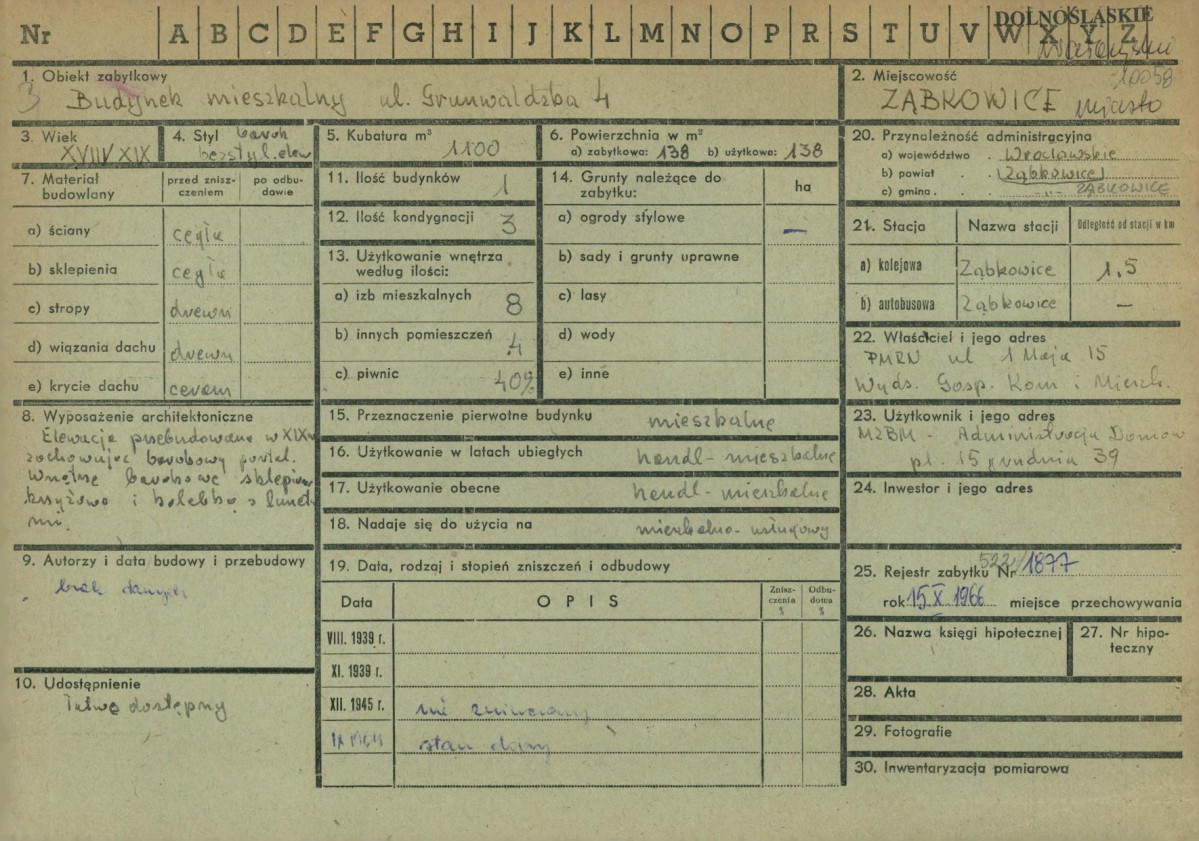 Nr A B C D E F G H I J K L M N O P R S T U V W X Y Z
DOLNOŚLĄSKIE
10058
1. Obiekt zabytkowy
3 Budynek mieszkalny ul. Grunwaldzka 4
2. Miejscowość
ZĄBKOWICE miasto
3. Wiek
XVIII/XIX
4. Styl barok
bezstyl. elew
5. Kubatura m³
1100
6. Powierzchnia w m²
a) zabytkowa: 138 b) użytkowa: 138
7. Materiał budowlany
przed zniszczeniem
po odbudowie
a) ściany cegła
b) sklepienia cegła
c) stropy drewn
d) wiązania dachu drewn
e) krycie dachu ceram
8. Wyposażenie architektoniczne
Elewacja przebudowana w XIXw
zachowując barokowy portal.
Wnętrze barokowe sklepien
krzyżowo i kolebką z lunet
mi.
9. Autorzy i data budowy i przebudowy
brak danych
10. Udostępnienie
łatwo dostępny
11. Ilość budynków 1
12. Ilość kondygnacji 3
13. Użytkowanie wnętrza
według ilości:
a) izb mieszkalnych 8
b) innych pomieszczeń 4
c) piwnic 40%
14. Grunty należące do
zabytku:
ha
a) ogrody stylowe –
b) sady i grunty uprawne
c) lasy
d) wody
e) inne
15. Przeznaczenie pierwotne budynku mieszkalne
16. Użytkowanie w latach ubiegłych handl-mieszkalne
17. Użytkowanie obecne handl-mieszkalne
18. Nadaje się do użycia na mieszkalno-usługowy
19. Data, rodzaj i stopień zniszczeń i odbudowy
Data OPIS Zniszczenia % Odbudowa %
VIII. 1939 r.
XI. 1939 r.
XII. 1945 r. nie zniszczony
stan dobry
20. Przynależność administracyjna
a) województwo Wrocławskie
b) powiat Ząbkowice
c) gmina -"- ZĄBKOWICE
21. Stacja Nazwa stacji Odległość od stacji w km
a) kolejowa Ząbkowice 1,5
b) autobusowa Ząbkowice –
22. Właściciel i jego adres
PMRN ul 1 Maja 15
Wydz. Gosp. Kom i Mieszk.
23. Użytkownik i jego adres
MZBM - Administracja Domów
pl. 15 grudnia 39
24. Inwestor i jego adres
25. Rejestr zabytku Nr 522/1877
rok 15 X 1966 miejsce przechowywania
26. Nazwa księgi hipotecznej
27. Nr hipoteczny
28. Akta
29. Fotografie
30. Inwentaryzacja pomiarowa